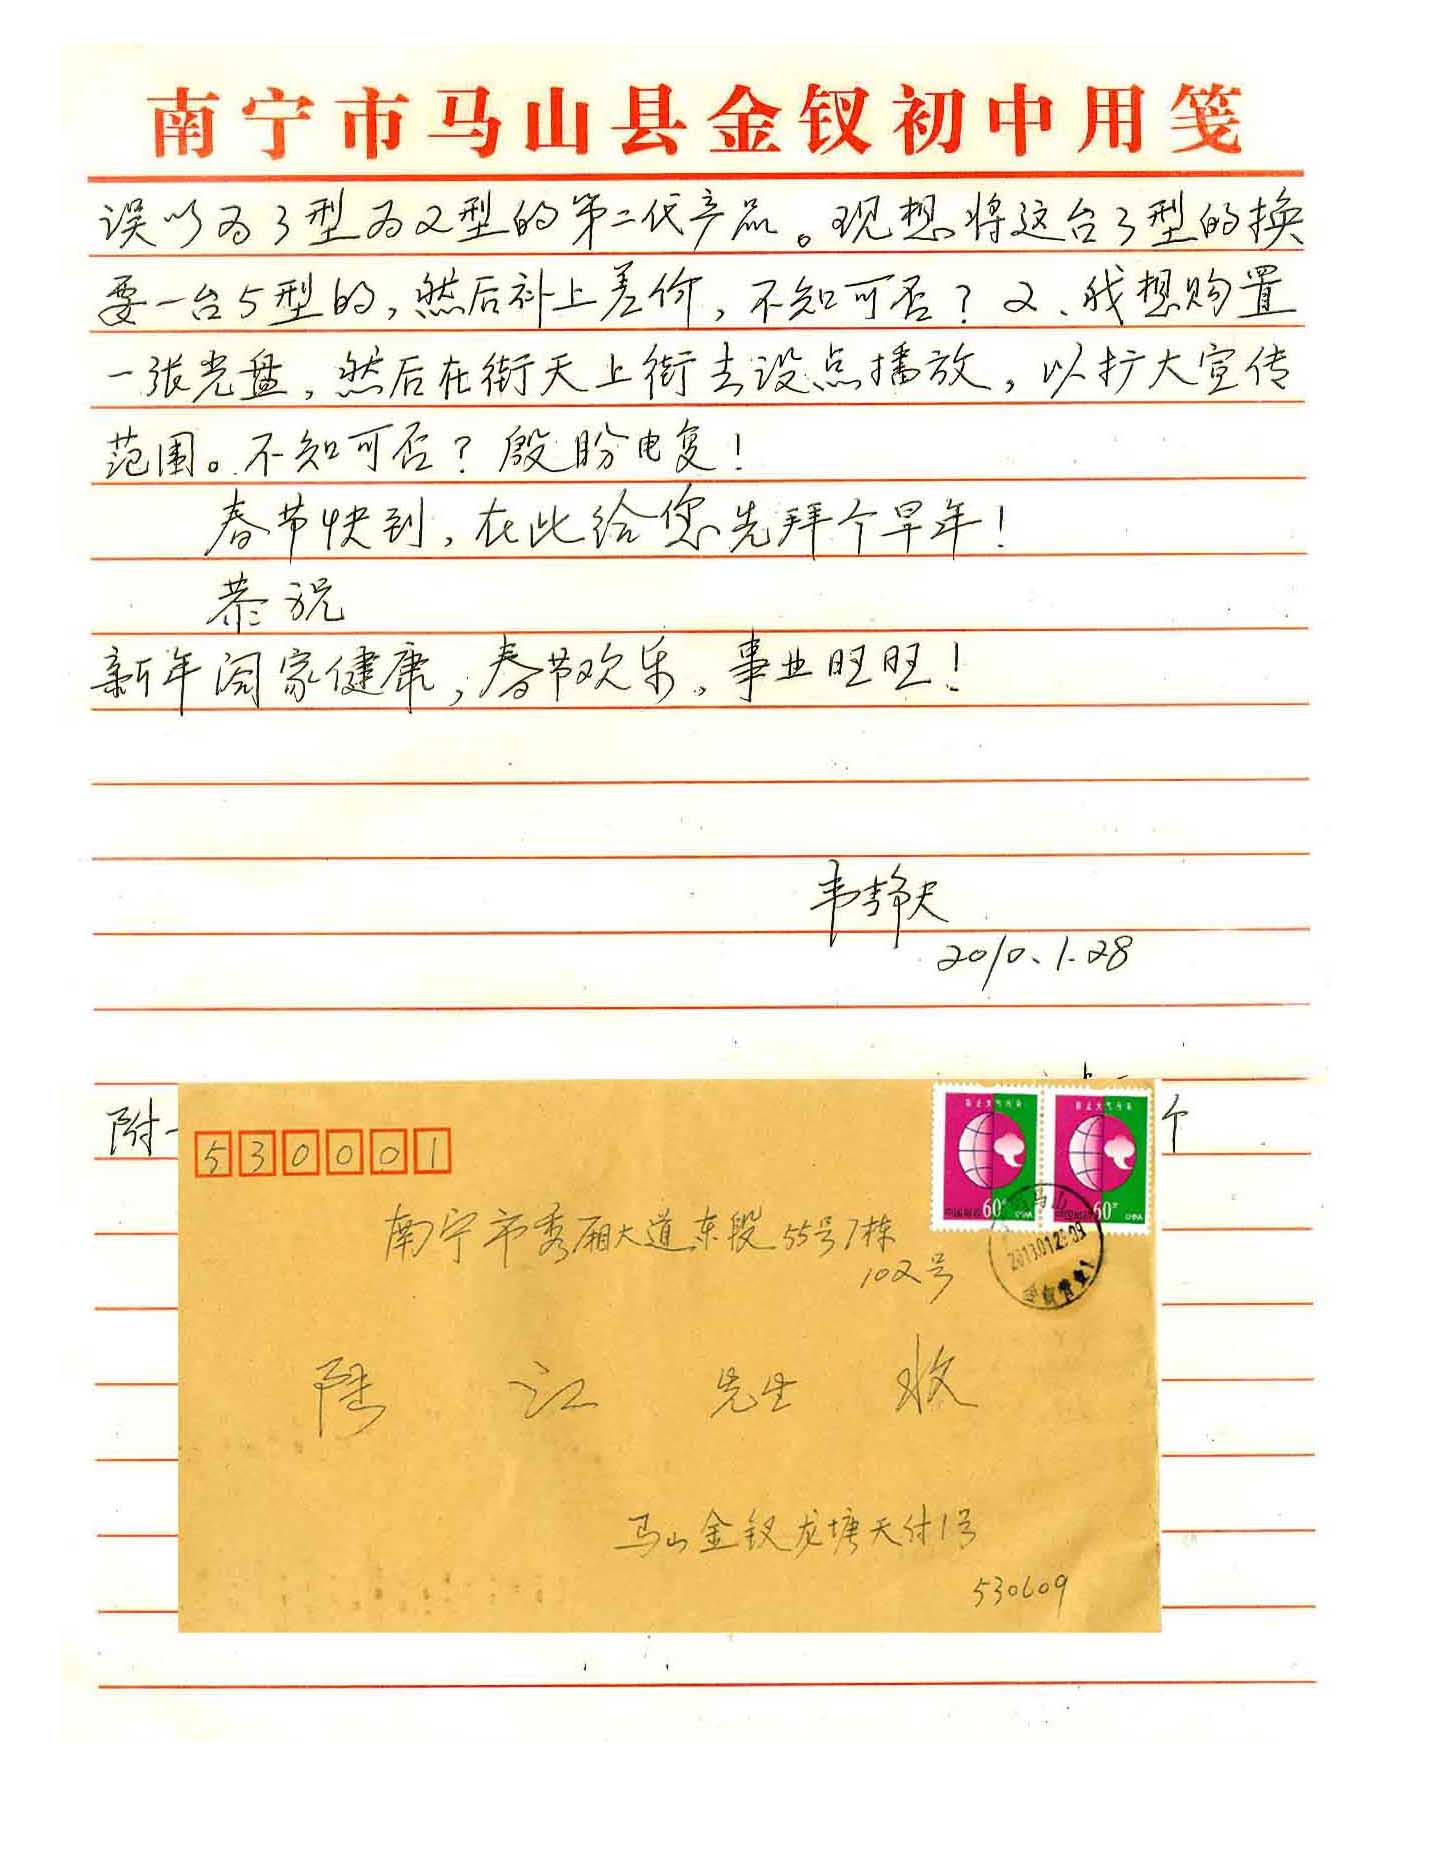 南宁市马山县金钗初中用笺
误以为3型为2型的第二代产品。现想将这台3型的换
要一台5型的,然后补上差价,不知可否?2、我想购置
一张光盘,然后在街天上街去设点播放,以扩大宣传
范围。不知可否?殷盼电复!
春节快到,在此给您先拜个早年!
恭祝
新年阖家健康,春节欢乐,事业旺旺!
韦静夫
2010.1.28
附 个
防止大气污染 防止大气污染
中国邮政 60分 CHINA 60分 CHINA
530001
马山
南宁市秀厢大道东段55号7栋
102号
陆江先生收
马山金钗龙塘天付1号
530609